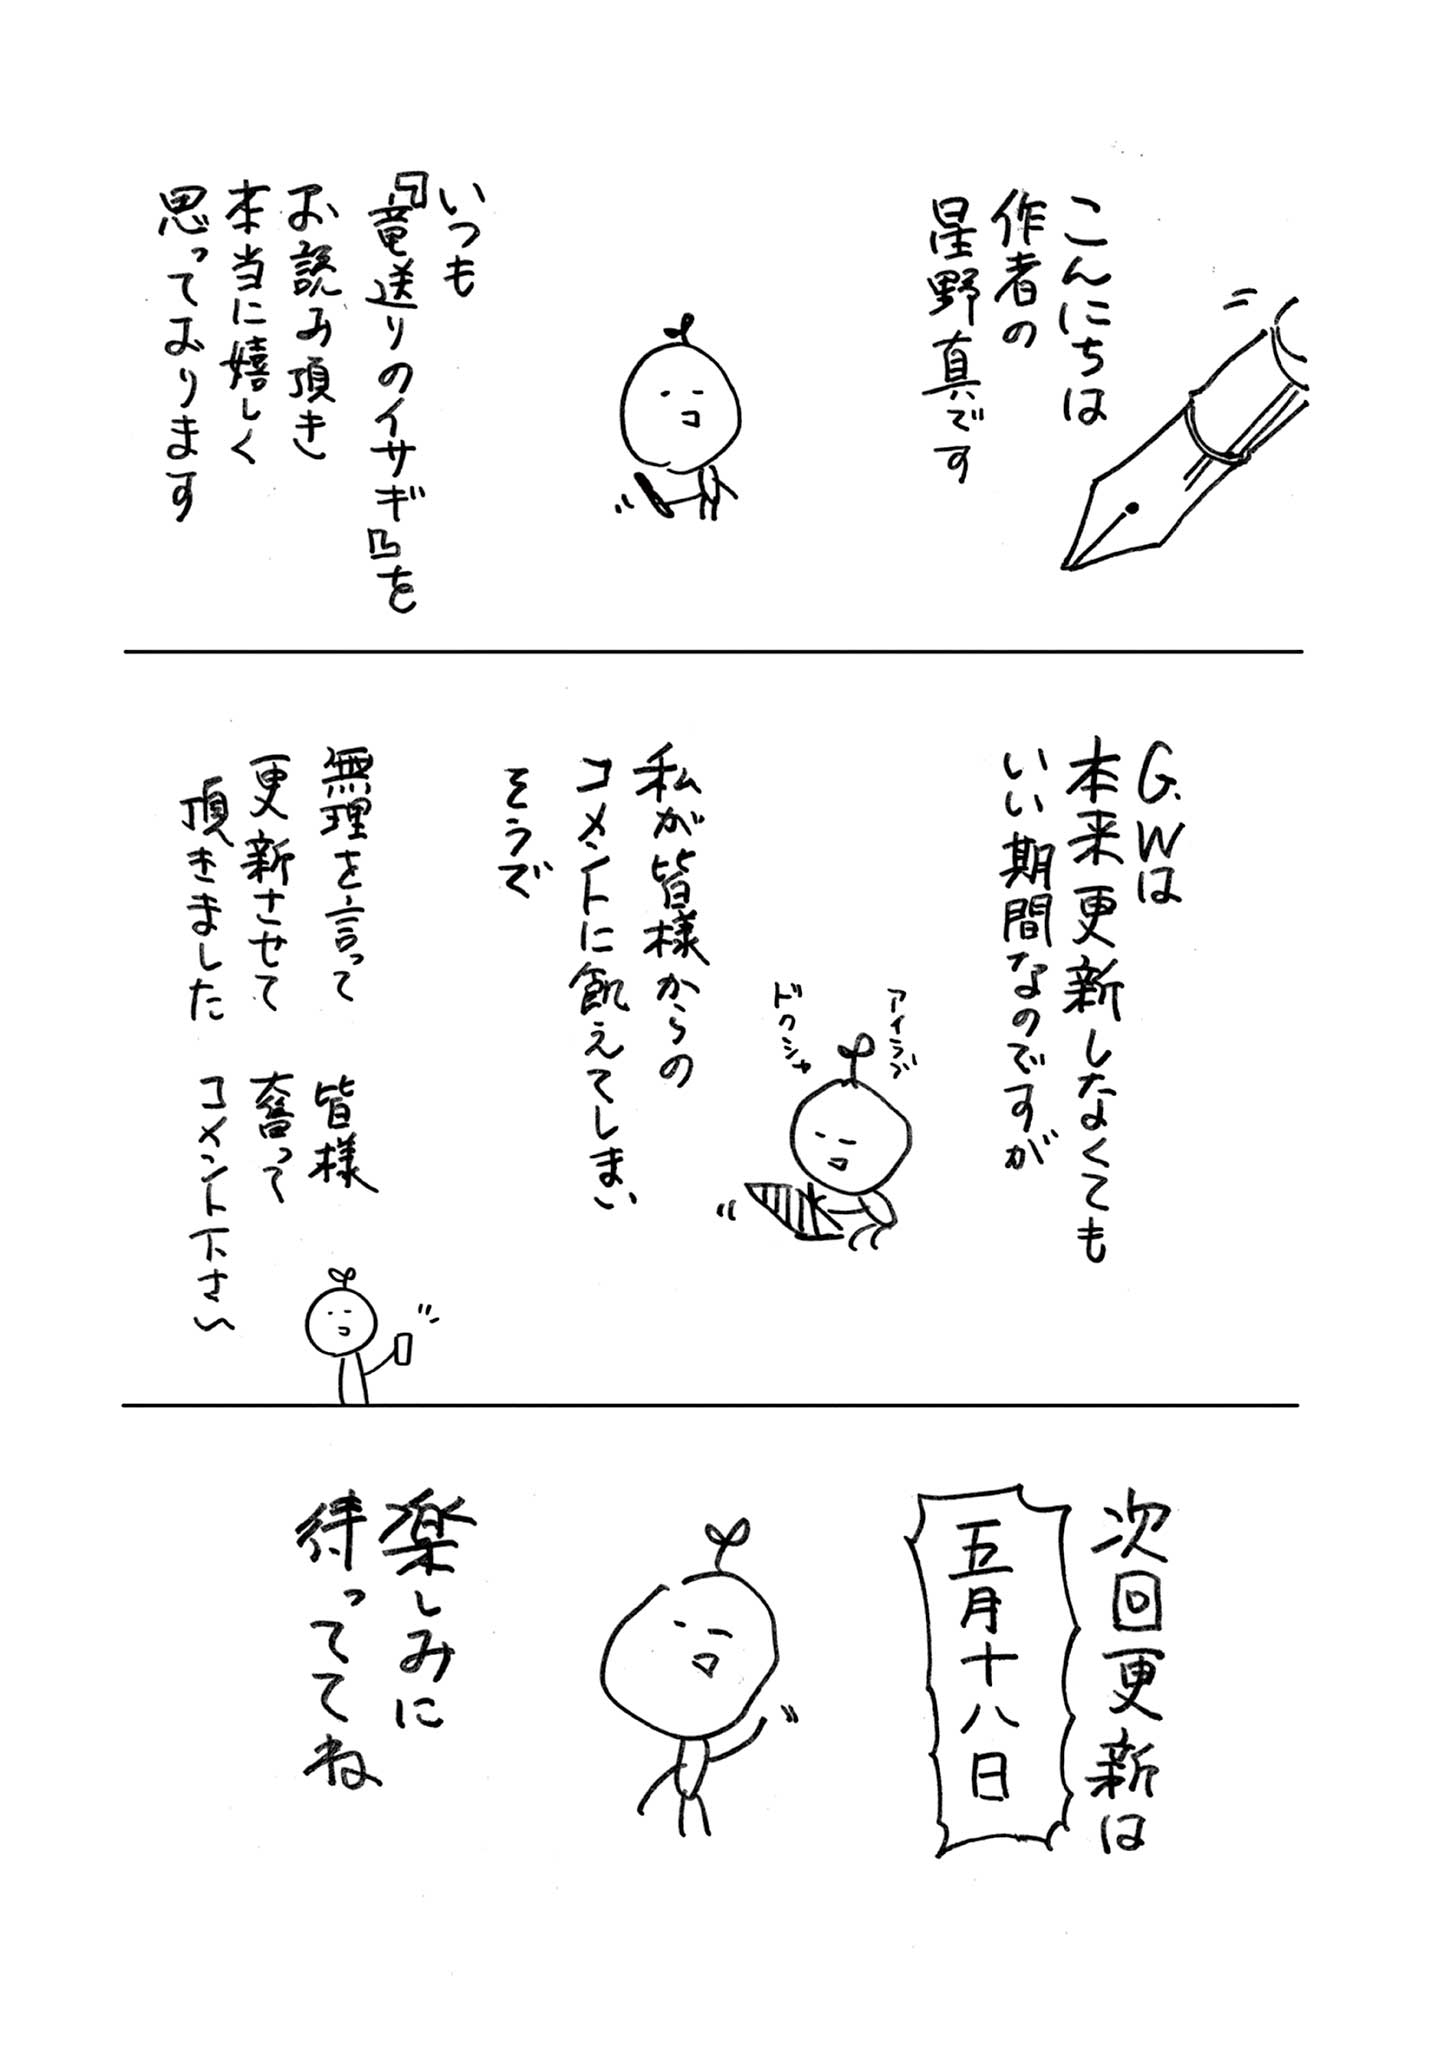 こんにちは
作者の
星野真です
いつも
『竜送りのイサギ』を
お読み頂き
本当に嬉しく
思っております
G.Wは
本来更新しなくても
いい期間なのですが
アイラブ
ドクシャ
私が皆様からの
コメントに飢えてしまい
そうで
無理を言って
更新させて
頂きました
皆様
奮って
コメント下さい
次回更新は
五月十八日
楽しみに
待っててね